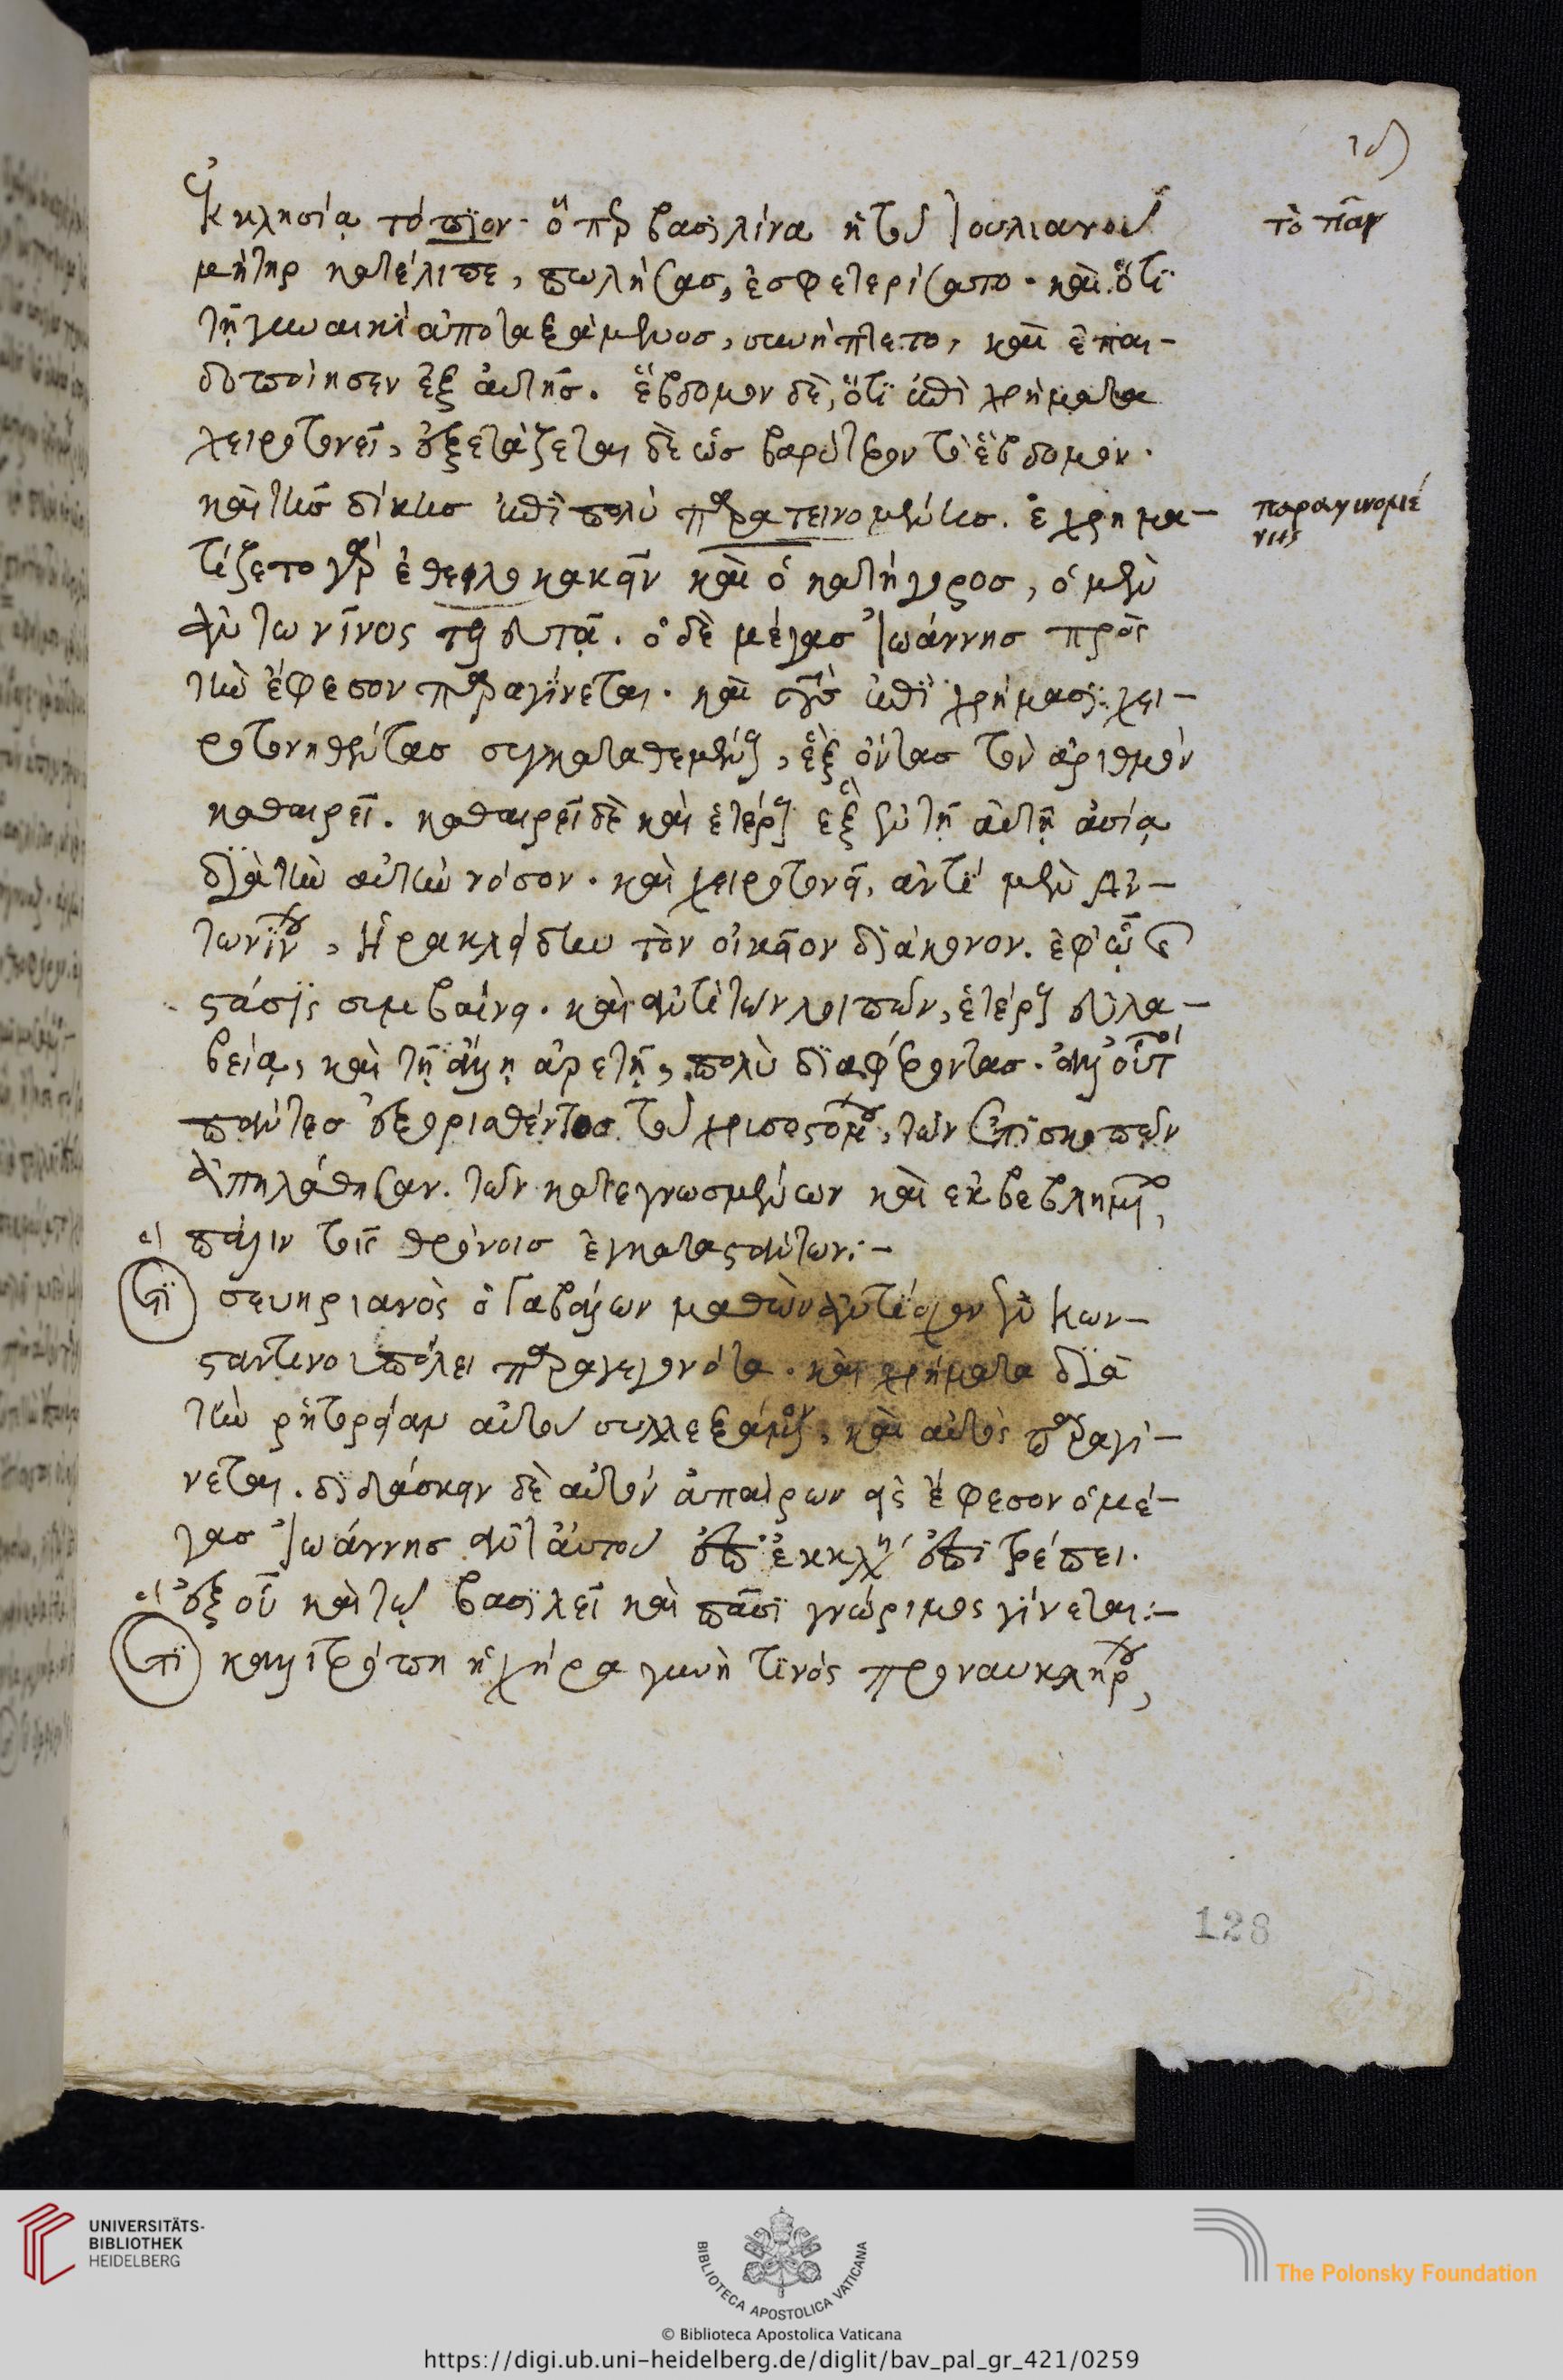 ιδ
ἐκκλησίᾳ τόπιον· ὅπερ βασιλίνα ἡ τοῦ Ἰουλιανοῦ
τὸ πᾶν
μήτηρ κατέλιπε, πωλήσας, ἐσφετερίσατο· καὶ ὅτι
τῇ γυναικὶ ἀποταξάμενος, συνήπτετο, καὶ ἐπαι-
δοποίησεν ἐξ αὐτῆς. ἕβδομον δὲ, ὅτι ἐπὶ χρήματα
χειροτονεῖ, ἐξετάζεται δὲ ὡς βαρύτερον τὸ ἕβδομον·
καὶ τῆς δίκης ἐπὶ πολὺ παρατεινομένης. ἐχρημα-
παραγινομέ
νης
τίζετο γὰρ ἐθελοκακεῖν καὶ ὁ κατήγορος, ὁ μὲν
ἀντωνῖνος τελευτᾷ. ὁ δὲ μέγας Ἰωάννης πρὸς
τὴν ἔφεσον παραγίνεται. καὶ τοὺς ἐπὶ χρήμασι χει-
ροτονηθέντας συγκαταθεμένους, ἓξ ὄντας τὸν ἀριθμὸν
καθαιρεῖ. καθαιρεῖ δὲ καὶ ἑτέρους ἓξ ἐν τῇ αὐτῇ ἀσίᾳ
διὰ τὴν αὐτὴν νόσον. καὶ χειροτονεῖ, ἀντὶ μὲν Ἀν-
τωνίνου, Ἡρακλείδην τὸν οἰκεῖον διάκονον. ἐφ' ᾧ
στάσις συμβαίνει. καὶ ἀντὶ τῶν λοιπῶν, ἑτέρους εὐλα-
βείᾳ, καὶ τῇ ἄλλῃ ἀρετῇ, πολὺ διαφέροντας. ἀλλ' οὗτοι
πάντες ἐξορισθέντος τοῦ χρυσοστόμου, τῶν ἐπισκοπῶν
ἀπηλάθησαν. τῶν κατεγνωσμένων καὶ ἐκβεβλημένων,
πάλιν τοῖς θρόνοις ἐγκαταστάντων:-
ὅτι σευηριανὸς ὁ Γαβάλων μαθὼν ἀντίοχον ἐν Κων-
σταντινουπόλει παραγεγονότα. καὶ χρήματα διὰ
τὴν ῥητορείαν αὐτοῦ συλλεξάμενον, καὶ αὐτὸς παραγί-
νεται. διδάσκειν δὲ αὐτὸν ἀπαίρων εἰς ἔφεσον ὁ μέ-
γας Ἰωάννης ἀντ' αὐτοῦ ἐπ' ἐκκλησίας ἐπιτρέπει.
ἐξ οὗ καὶ τῷ βασιλεῖ καὶ πᾶσι γνώριμος γίνεται:-
ὅτι καλλιτρόπη ἡ χήρα γυνὴ τινὸς προναυκλήρου,
128
UNIVERSITÄTS-
BIBLIOTHEK
HEIDELBERG
BIBLIOTECA APOSTOLICA VATICANA
The Polonsky Foundation
© Biblioteca Apostolica Vaticana
https://digi.ub.uni-heidelberg.de/diglit/bav_pal_gr_421/0259